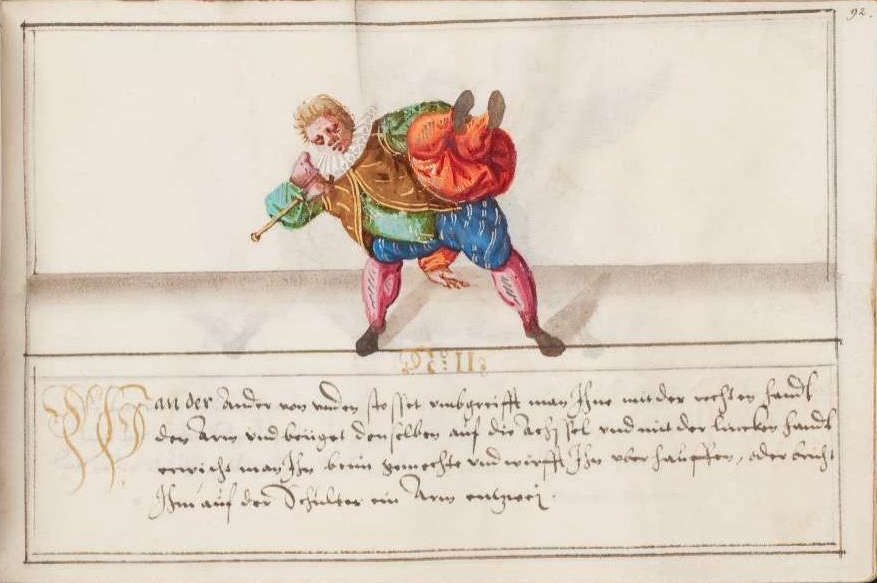 92.
No: 11:
Wan der Ander von unden stosset umbgreifft man Ihne mit der rechten handt
den Arm und beüget denselben auf die achssel und mit der lincken handt
erwischt man Ihn beim gemechte und wirfft Ihn uber hauffen, oder bricht
Ihm auf der Schulter ein Arm entzwei.